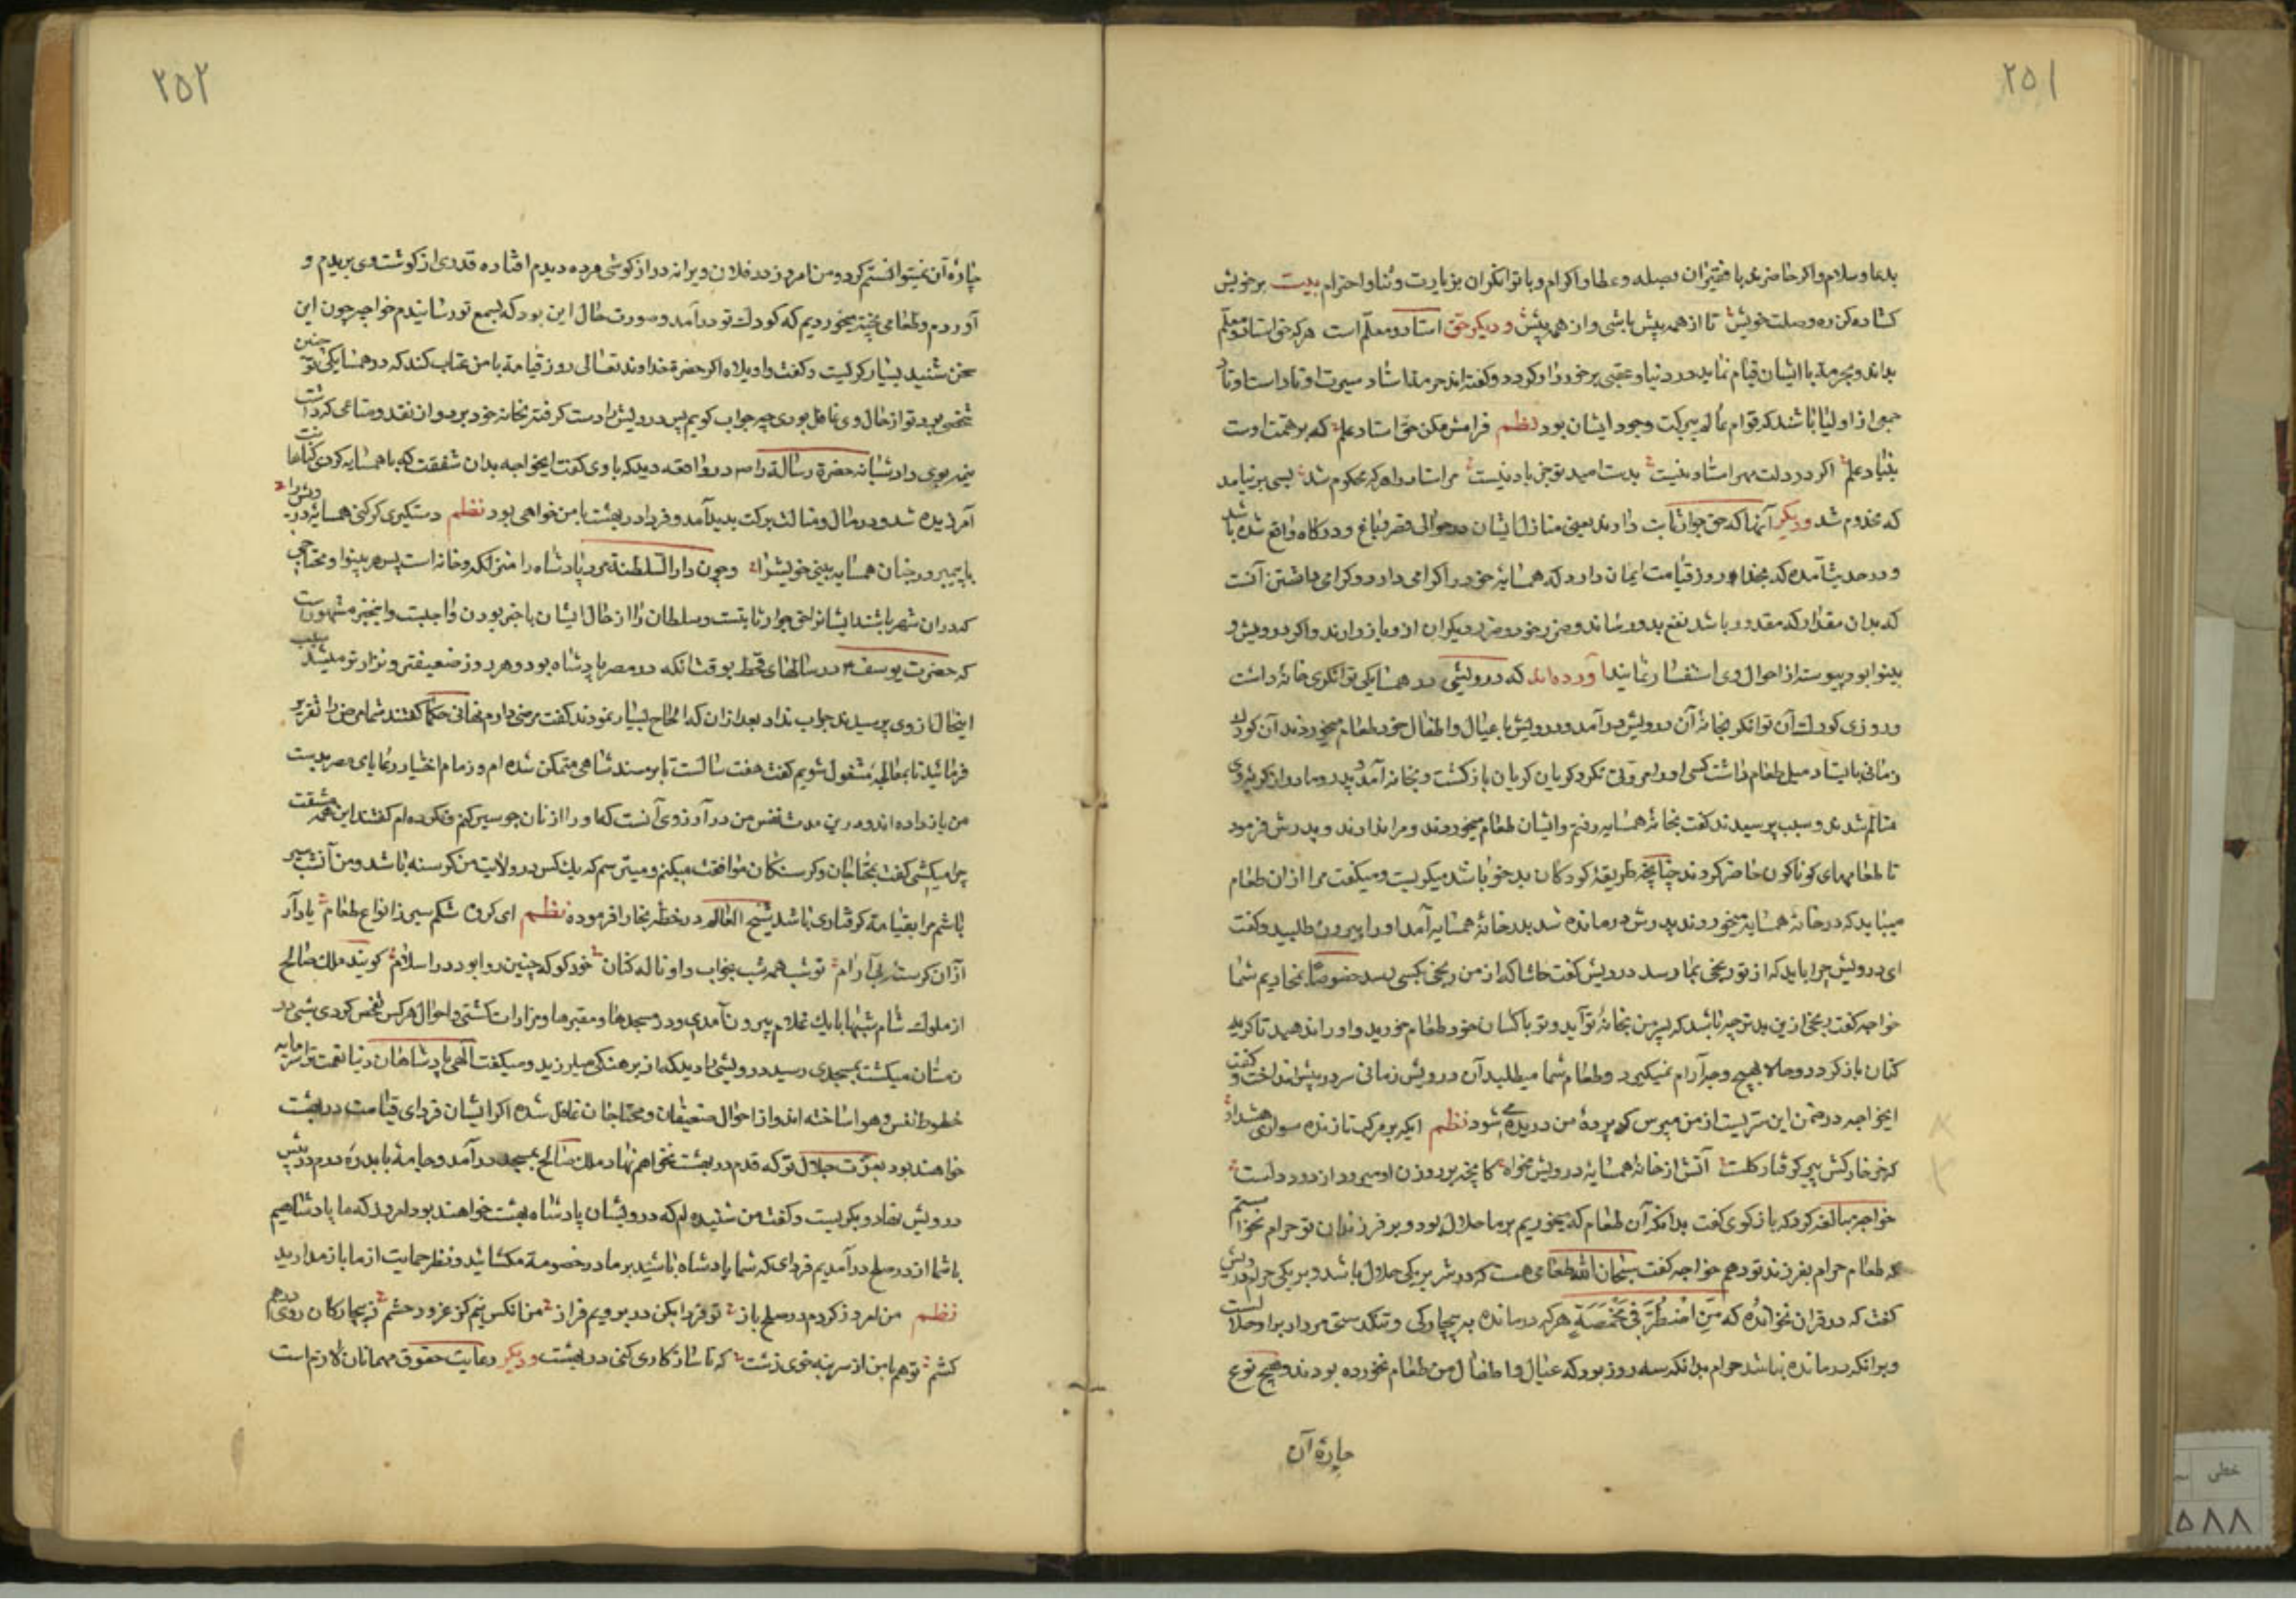 ۲۵۱
بدعا و سلام و اکر حاضرند با فقیران بصله و عطا و اکرام و با توانکران بزیارت و ثنا و احترام بیت بر خویش
کشاده کن ره وصلت خویش تا از همه بیش باشی و از همه پیش و دیکر حق استاد و معلّم است هر که حق استاد و معلّم
بداند و بحرمة با ایشان قیام نماید در دنیا و عقبی برخوردار کردد و کفته اند حرمة استاد
جمعی از اولیا باشند که قوام عالم ببرکت وجود ایشان بود نظم فرامش مکن حق استاد علم که بر همت اوست
بنیاد علم اکر در دلت مهر استاد نیست بدست امید تو جز باد نیست مر استاد را هر که محکوم شد بسی بر نیامد
که مخدوم شد و دیکر آنها که حق جوار ثابت دارند یعنی منازل ایشان در حوالی قصر و باغ و درکاه واقع شده باشد
و در حدیث آمده که بخدا و روز قیامت ایمان دارد که همسایۀ خود را کرامی دارد و کرامی داشتن آنست
که بدان مقدار که مقدور باشد نفع بدو رساند و ضرر خود و ضرر دیکران ازو باز دارند و اکر درویش و
بینوا بود پیوسته از احوال وی استفسار نمایند آورده‌اند که درویشی در همسایکی توانکری خانه داشت
و روزی کودک آن توانکر بخانۀ آن درویش در آمد و درویش با عیال و اطفال خود طعام میخوردند آن کودک
زمانی بایستاد میل طعام داشت کسی او را مروتی نکرد کریان کریان باز کشت و بخانه آمد و پدر و مادر از کریۀ وی
متالم شدند و سبب پرسیدند کفت بخانۀ همسایه رفتم و ایشان طعام میخوردند و مرا ندادند و پدرش فرمود
تا طعامهای کوناکون حاضر کردند چنانچه طریقۀ کودکان بدخو باشد میکریست و میکفت مرا از ان طعام
میباید که در خانۀ همسایه میخوردند پدرش درمانده شد بدر خانۀ همسایه آمد او را بیرون طلبید و کفت
ای درویش چرا باید که از تو رنجی بما رسد درویش کفت حاشا که از من رنجی بکسی رسد خصوصا بخادیم شما
خواجه کفت رنجی ازین بدتر چه باشد که پسر من بخانۀ تو آید و تو با کسان خود طعام خورید و او را ندهید تا کریه
کنان باز کردد و حالا بهیچ وجه آرام نمیکیرد و طعام شما میطلبد آن درویش زمانی سر در پیش انداخت و کفت
ایخواجه در ضمن این سریست از من مپرس که پردۀ من دریده می شود نظم ایکه بر مرکب تازنده سواری هشدار
که خر خارکش پیر کرفتار کلست آتش از خانۀ همسایۀ درویش مخواه کانچه بر روزن او میرود از دود دلست
خواجه مبالغه کرد که باز کوی کفت بدانکه آن طعام که میخوریم بر ما حلال بود و بر فرزندان تو حرام نخواستیم
که طعام حرام بفرزند تو دهم خواجه کفت سبحان الله طعامی هست که در شرع بر یکی حلال باشد و بر یکی حرام درویش
کفت که در قران نخواندۀ که فَمَنِ اضْطُرَّ فِی مَخْمَصَةٍ هر که درمانده به بیچارکی و تنکدستی مردار برا و حلالست
و برانکه درمانده نباشد حرام بدانکه سه روز بود که عیال و اطفال من طعام نخورده بودند و هیچ نوع
چارۀ آن
۲۵۲
چارۀ آن نمیتوانستم کرد و من امروز در فلان ویرانه درازکوشی مرده دیدم افتاده قدری از کوشت وی بریدم و
آوردم و طعامی پخته میخوردیم که کودک تو درآمد و صورت حال این بود که بسمع تو رسانیدم خواجه چون این
سخن شنید بسیار کریست و کفت واویلاه اکر حضرة خداوند تعالی روز قیامة با من عتاب کند که در همسایکی تو چنین
شخصی بود تو از حال وی غافل بودی چه جواب کویم پس درویش را دست کرفته بخانه خود برد و از نقد و متاعی که داشت
نیمه بوی داد شبانه حضرة رسالة را در واقعه دید که با وی کفت ایخواجه بدان شفقت که با همسایه کردی کناهانت
آمرزیده شد و در مال و منالت برکت پدید آمد و فردا در بهشت با من خواهی بود نظم دستکیری کر کنی همسایۀ درویش را
با پیمبر در جنان همسایه بینی خویش را و چون دار السلطنة مر پادشاه را منزلکه و خانه است پس هر بینوا و محتاجی
که در ان شهر باشند ایشانرا حق جوار ثابتست و سلطان را از حال ایشان باخبر بودن واجبست و این خبر مشهور است
که حضرت یوسف در سالهای قحط بوقت آنکه در مصر پادشاه بود و هر روز ضعیف‌تر و نزارتر میشد سبب
اینحال از وی پرسیدند جواب نداد بعد ازان که الحاح بسیار نمودند کفت مرضی دارم نهانی حکما کفتند شما مرض را تقریر
فرمائید تا بمعالجه مشغول شویم کفت هفت سالست تا بر مسند شاهی متمکن شده ام و زمام اختیار رعایای مصر بدست
من باز داده اند و درین مدت نفس من در آرزوی آنست که او را از نان جو سیر کنم و نکرده ام کفتند این همه مشقت
چرا میکشی کفت بمحتاجان و کرسنکان موافقت میکنم و میترسم که یک کس در ولایت من کرسنه باشد و من آنشب سیر
باشم مرا بقیامة کرفتاری باشد شیخ العالم در خطۀ بخارا فرموده نظم ای کرده شکم سیر ز انواع طعام یاد آر
از آن کرسنۀ بی آرام تو شب همه شب بخواب و او ناله کنان خود کو که چنین روا بود در اسلام کویند ملک صالح
از ملوک شام شبها با یک غلام بیرون آمدی و در مسجدها و مقبرها و مزارات کشتی و احوال هر کس تفحص کردی شبی در
زمستان میکشت بمسجدی رسید درویشی را دید که از برهنکی میلرزید و میکفت الهی پادشاهان دنیا نعمت ترا سرمایه
حظوظ نفس و هوا ساخته اند و از احوال ضعیفان و محتاجان غافل شده اکر ایشان فردای قیامت در بهشت
خواهند بود بعزّت جلال تو که قدم در بهشت نخواهم نهاد ملک صالح بمسجد در آمد و جامۀ با بدرۀ درم در پیش
درویش نهاد و بکریست و کفت من شنیده ام که درویشان پادشاه بهشت خواهند بود امروز که ما پادشاهیم
با شما از در صلح درآمدیم فردای که شما پادشاه باشید بر ما در خصومة مکشائید و نظر حمایت از ما باز مدارید
نظم من امروز کردم در صلح باز تو فردا مکن در برویم فراز من انکس نیم کز غرور حشم ز بیچارکان روی درهم
کشم تو هم با من از سر بنه خوی زشت که ناسازکاری کنی در بهشت و دیکر رعایت حقوق مهمانان لازم است
خطی
۵۸۸